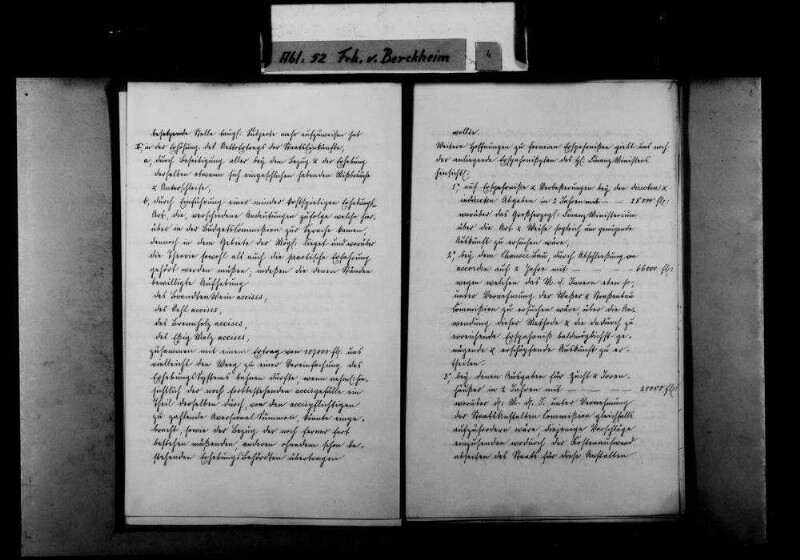 Abt. 52 Frh. v. Berckheim 4
besetzende Stelle taugl: Subjecte mehr aufzuweisen hat
II, in der Erhöhung des NettoErtrags der Staatseinkünfte,
a, durch Beseitigung aller bey dem Bezug & der Erhebung
derselben etwann sich eingeschlichen habenden Mißbräuche
& Unterschleife,
b, durch Einführung einer minder kostspieligen Erhebungs-
Art, die, verschiedene Andeutungen zufolge welche hier-
über in der Budgetscommission zur Sprache kamen,
dennoch in dem Gebiete der Mögl: lieget und worüber
die Theorie sowohl als auch die practische Erfahrung
gehört werden müßten, indessen die denen Ständen
bewilligte Aufhebung
des BrandtenWein accises,
des Oehl accises,
des Brennholz accises,
des Essig Malz accises,
zusammen mit einem Ertrag von 107,000 fl: uns
vielleicht den Weg zu einer Vereinfachung des
Erhebungssystems bahnen dürfte wenn nehml: hin-
sichtlich der noch fortbestehenden accisgefälle ein
Theil derselben durch, von den accispflichtigen
zu zahlende Aversional Summen, könnte einge-
bracht, sowie der Bezug der noch ferner fort
bestehen müßenden anderen ohnedem schon be-
stehenden ErhebungsBehördten übertragen
wollte.
Weitere Hoffnungen zu ferneren Ersparnissen giebt uns noch
der anliegende Ersparnißplan des H: Finanz Ministers
hinsichtl:
1, auf Ersparnisse & Verbesserungen bey den directen &
indirecten Abgaben in 2 Jahren mit — — 28000 fl:
worüber das Großherzogl: Finanz Ministerium
über die Art & Weise sogleich um genügende
Auskunft zu ersuchen wäre,
2, bey dem Chaussé Bau, durch Abschließung von
accorden auf 2 Jahre mit — — — 66000 fl:
wegen welchen das M. d. Innern eben so,
unter Vernehmung der Wasser & Straßenbau
Commission zu ersuchen wäre, über die An-
wendung dieser Methode & die dadurch zu
erreichende Ersparniß baldmöglichst ge-
nügende & erschöpfende Auskunft zu er-
theilen.
3, bey denen Ausgaben für Zucht & Irren
häußer in 2 Jahren mit — — 27000 fl:
worüber d. M. d. I. unter Vernehmung
der Staatsanstalten Commission gleichfalls
aufzufordern wäre diejenige Vorschläge
einzusenden wodurch der Kostenaufwand
abseiten des Staats für diese Anstalten